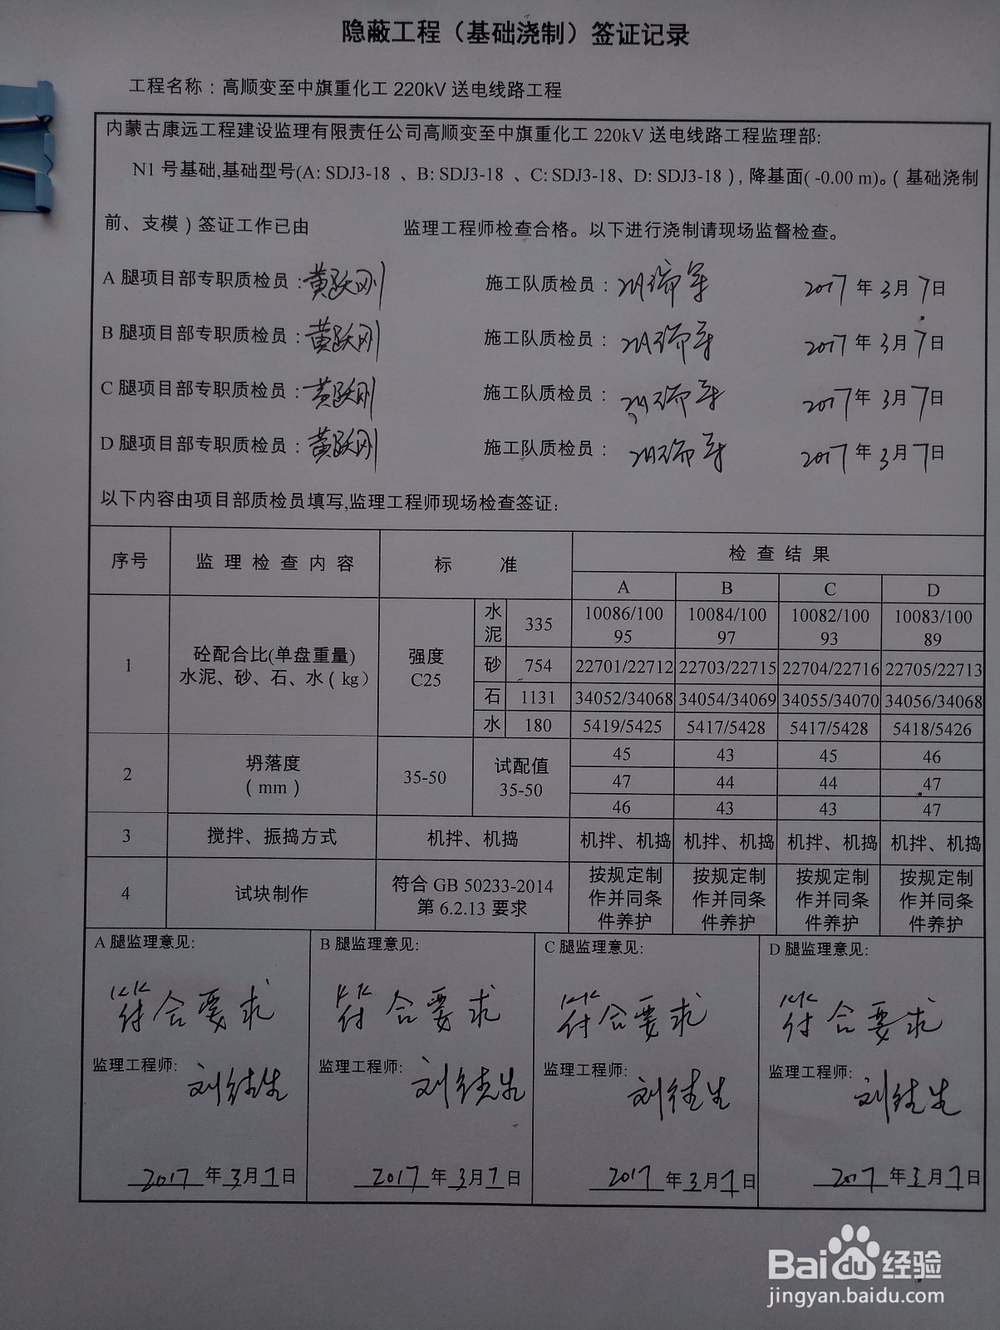 隐蔽工程（基础浇制）签证记录
工程名称：高顺变至中旗重化工 220kV 送电线路工程
内蒙古康远工程建设监理有限责任公司高顺变至中旗重化工 220kV 送电线路工程监理部:
N1 号基础,基础型号(A: SDJ3-18 、B: SDJ3-18 、C: SDJ3-18、D: SDJ3-18 ), 降基面( -0.00 m)。( 基础浇制
前、支模 ) 签证工作已由 监理工程师检查合格。以下进行浇制请现场监督检查。
A 腿项目部专职质检员：黄跃刚 施工队质检员： 2017 年 3 月 7 日
B 腿项目部专职质检员：黄跃刚 施工队质检员： 2017 年 3 月 7 日
C 腿项目部专职质检员：黄跃刚 施工队质检员： 2017 年 3 月 7 日
D 腿项目部专职质检员：黄跃刚 施工队质检员： 2017 年 3 月 7 日
以下内容由项目部质检员填写,监理工程师现场检查签证:
序号 监 理 检 查 内 容 标 准 检 查 结 果
A B C D
1 砼配合比(单盘重量) 水泥、砂、石、水 ( kg ) 强度 C25
水泥 335 10086/10095 10084/10097 10082/10093 10083/10089
砂 754 22701/22712 22703/22715 22704/22716 22705/22713
石 1131 34052/34068 34054/34069 34055/34070 34056/34068
水 180 5419/5425 5417/5428 5417/5428 5418/5426
2 坍落度 ( mm ) 35-50 试配值 35-50
45 43 45 46
47 44 44 47
46 43 43 47
3 搅拌、振捣方式 机拌、机捣 机拌、机捣 机拌、机捣 机拌、机捣 机拌、机捣
4 试块制作 符合 GB 50233-2014 第 6.2.13 要求 按规定制作并同条件养护 按规定制作并同条件养护 按规定制作并同条件养护 按规定制作并同条件养护
A 腿监理意见: B 腿监理意见: C 腿监理意见: D 腿监理意见:
符合要求 符合要求 符合要求 符合要求
监理工程师: 监理工程师: 监理工程师: 监理工程师:
2017 年 3 月 7 日 2017 年 3 月 7 日 2017 年 3 月 7 日 2017 年 3 月 7 日
Baidu 经验
jingyan.baidu.com